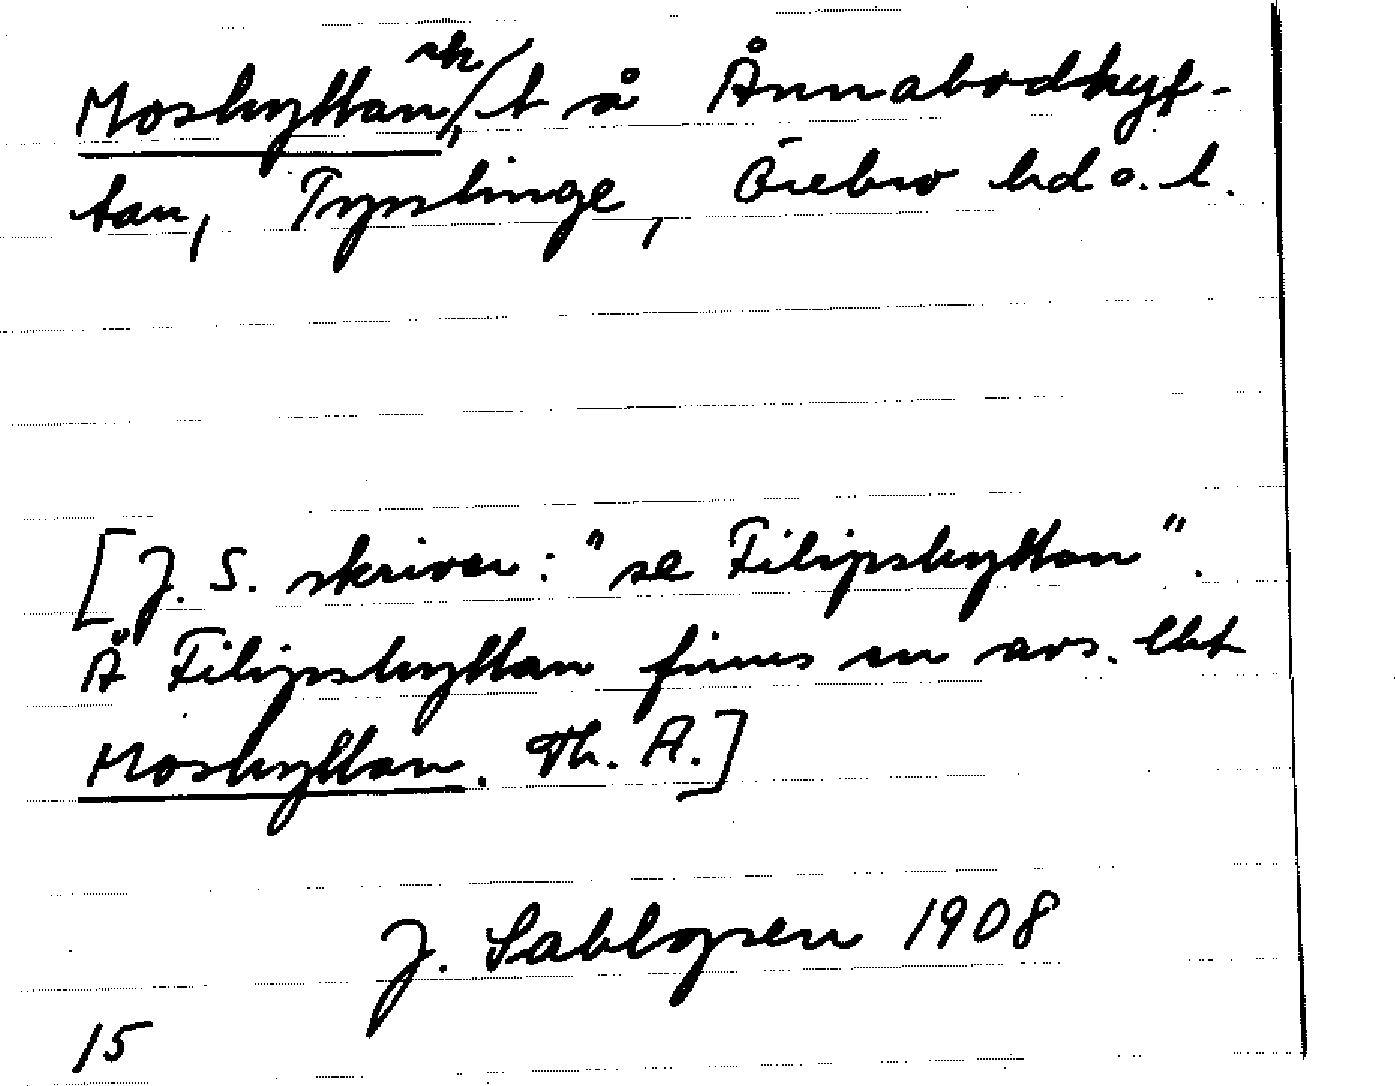 Moshyttan, sk/t å Ånnabodhyt-
tan, Tysslinge, Örebro hd o. l.
[J. S. skriver: "se Filipshyttan".
Å Filipshyttan finnes en avs. lht
Moshyttan. Th. A.]
J. Sahlgren 1908
15